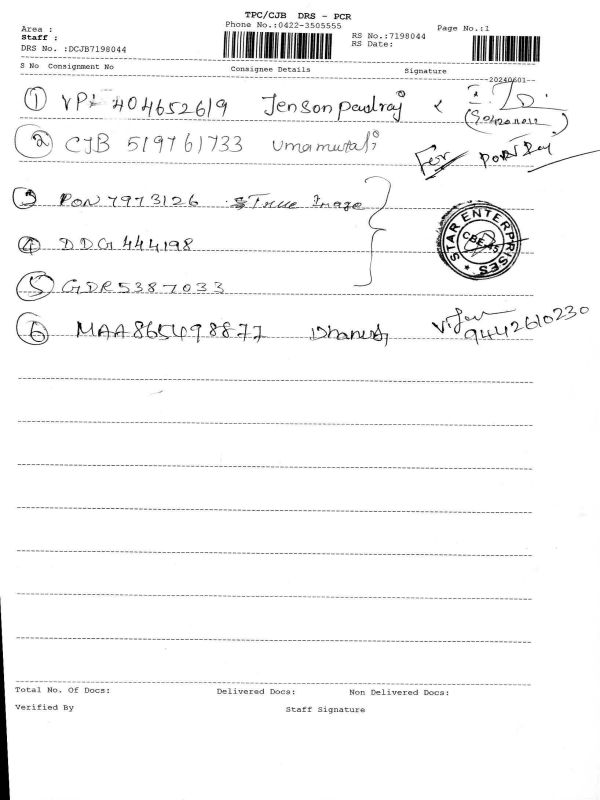 TPC/CJB DRS - PCR
Area : Phone No.:0422-3505555 Page No.:1
Staff : RS No.:7198044
DRS No. :DCJB7198044 RS Date:
S No Consignment No Consignee Details Signature
20240601
1 VPI 404652619 Jenson paulraj
2 CJB 519761733 Umamutali For
3 PON 7973126 True Image
STAR ENTERPRISES CBE-45
4 DDG 444198
5 GDR5387033
6 MAA865498877 Dhanush 9442610230
Total No. Of Docs: Delivered Docs: Non Delivered Docs:
Verified By Staff Signature